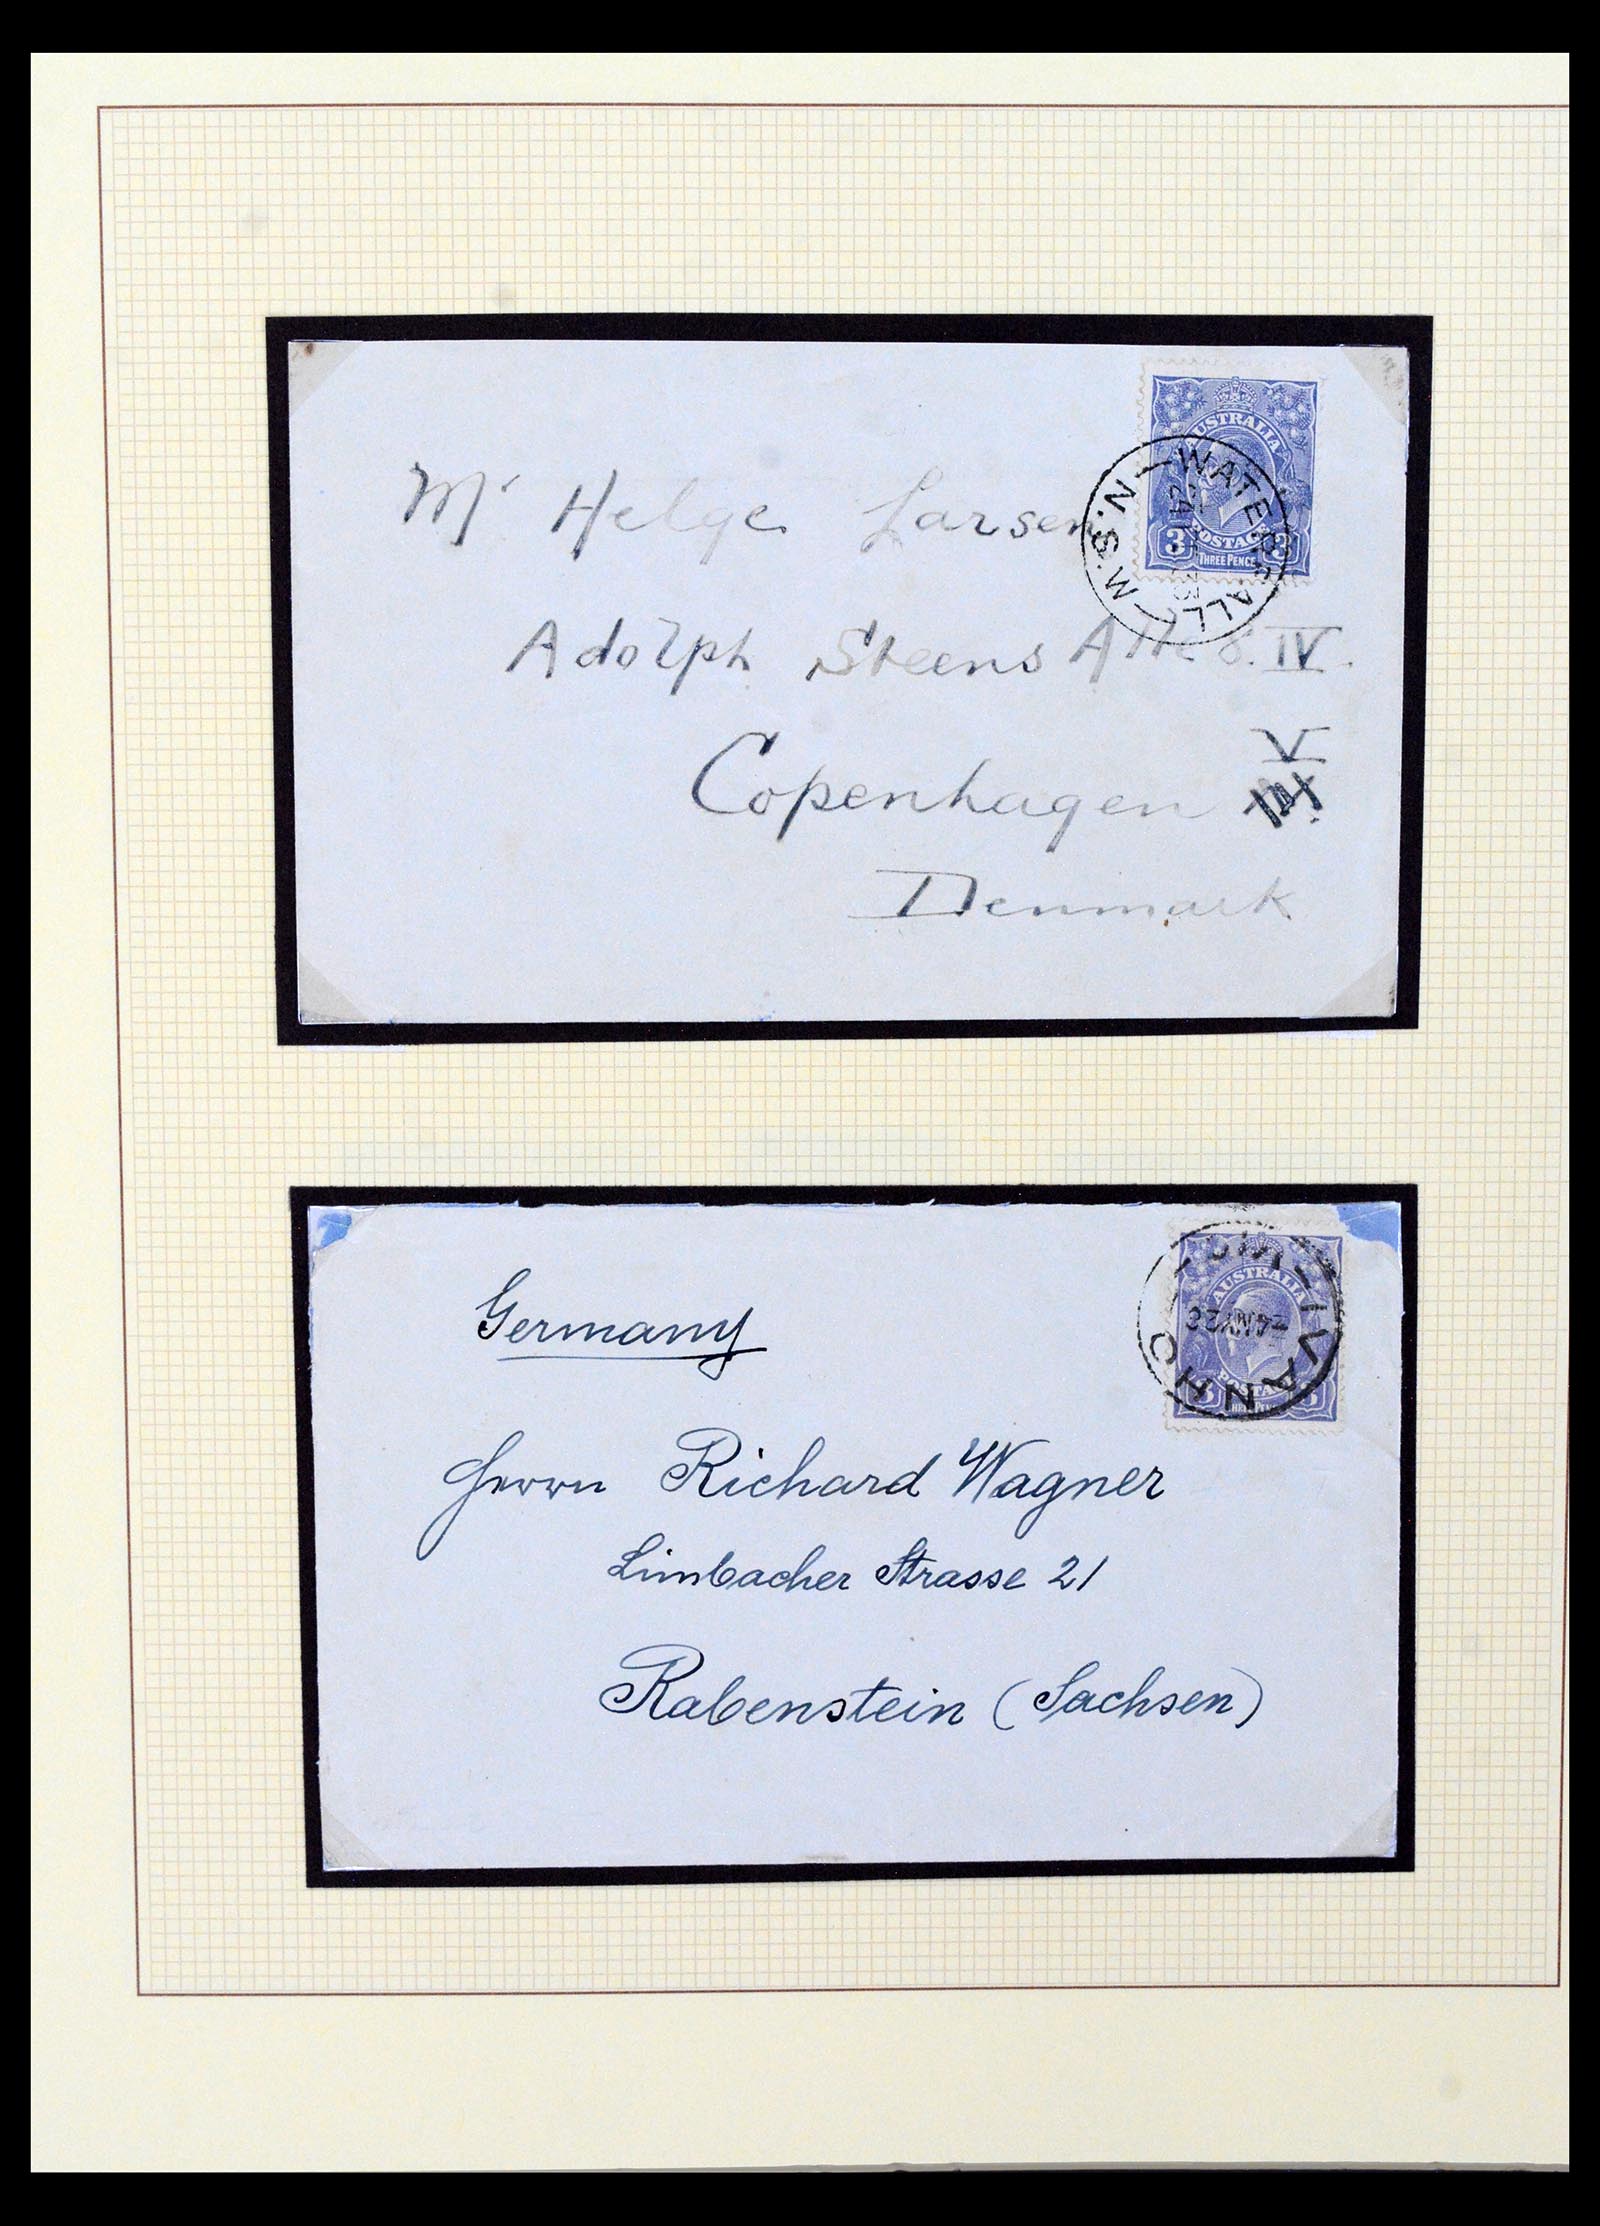 AUSTRALIA
POSTAGE
3 3
THREE PENCE
WATERFALL
N.S.W
Mr Helge Larsen
Adolph Steens Alle 8. IV.
V
Copenhagen
Denmark
AUSTRALIA
POSTAGE
3 3
THREE PENCE
IVANHO
Germany
Herrn Richard Wagner
Limbacher Strasse 21
Rabenstein (Sachsen)